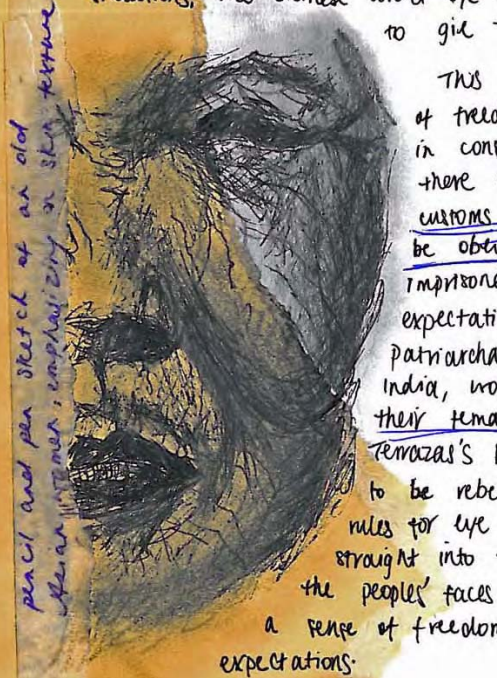 pencil and pen sketch of an old
Asian women, emphasizing on skin texture
to give
This
of freedom
in con
there
customs
be obe
imprisone
expectati
patriarcha
India, wo
their fema
Terrazas's
to be rebe
rules for eye
straight into
the peoples' faces
a sense of freedom
expectations.